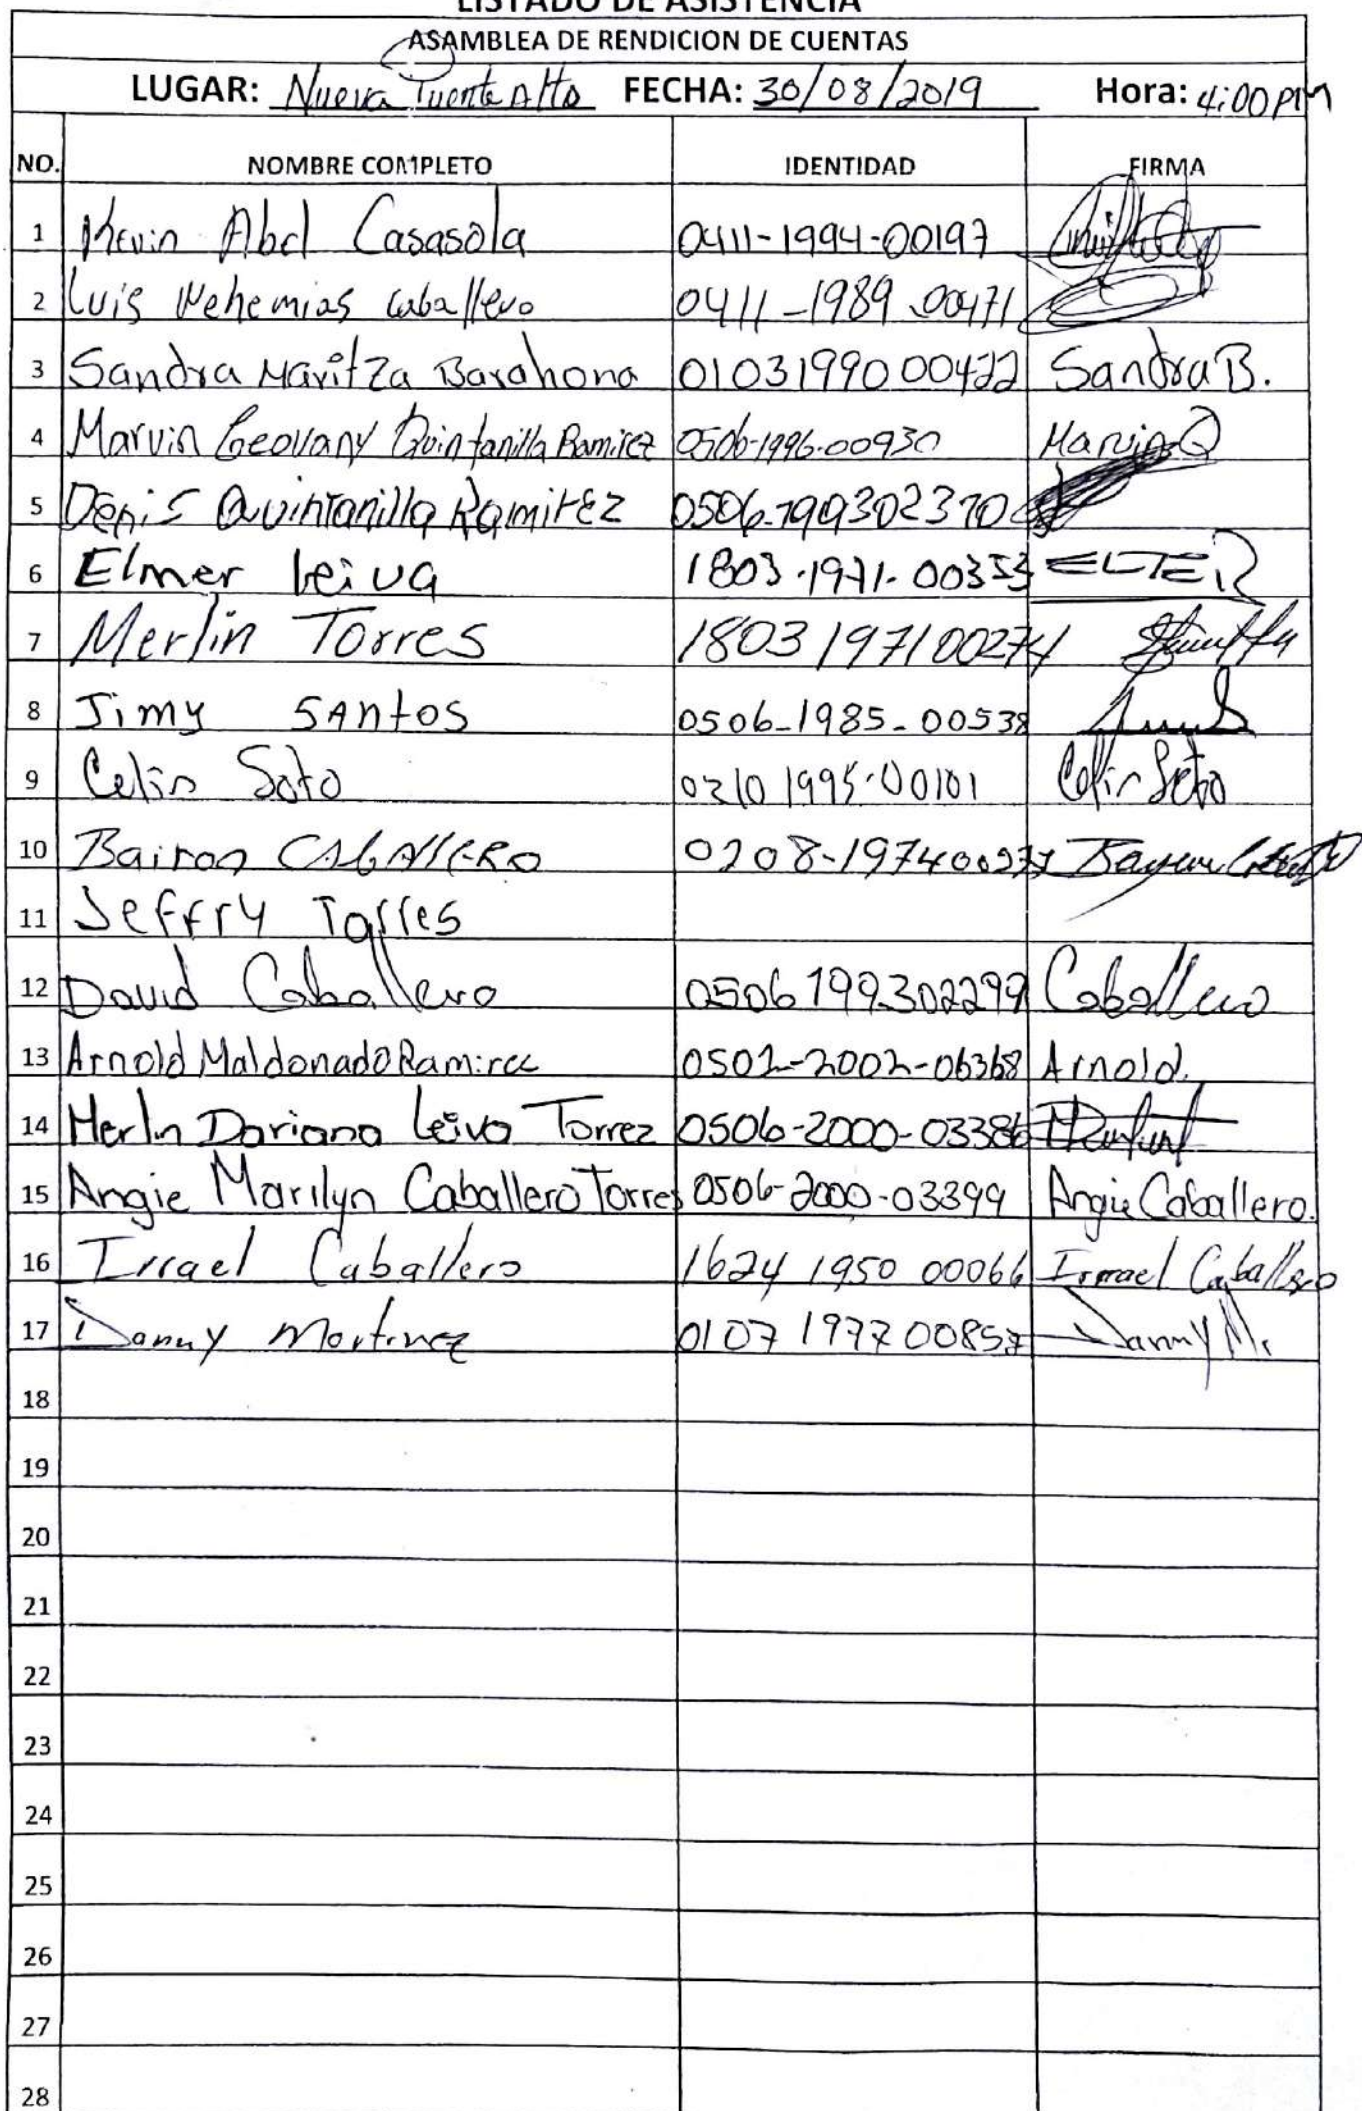 LISTADO DE ASISTENCIA
ASAMBLEA DE RENDICION DE CUENTAS
LUGAR: Nueva Puente Alto FECHA: 30/08/2019 Hora: 4:00 PM
NO. NOMBRE COMPLETO IDENTIDAD FIRMA
1 Kevin Abel Casasola 0411-1994-00197
2 Luis Nehemias Caballero 0411-1989-00471
3 Sandra Maritza Barahona 0103199000422 Sandra B.
4 Marvin Geovany Quintanilla Ramirez 0506-1996-00930 Marvin Q
5 Denis Quintanilla Ramirez 0506-199302370
6 Elmer Leiva 1803-1971-00353 ELTER
7 Merlin Torres 1803197100274
8 Jimy SAntos 0506-1985-00538
9 Celin Soto 0210 1995-00101 Celin Soto
10 Bairon CABAllERO 0208-1974
11 Jeffry Torres
12 David Caballero 0506199302299 Caballero
13 Arnold Maldonado Ramirez 0502-2002-06368 Arnold.
14 Merlin Dariana Leiva Torrez 0506-2000-03386
15 Angie Marilyn Caballero Torres 0506-2000-03399 Angie Caballero.
16 Israel Caballero 1624 1950 00066 Ismael Caballero
17 Danny Martinez 0107 1977 00857 Danny M.
18
19
20
21
22
23
24
25
26
27
28